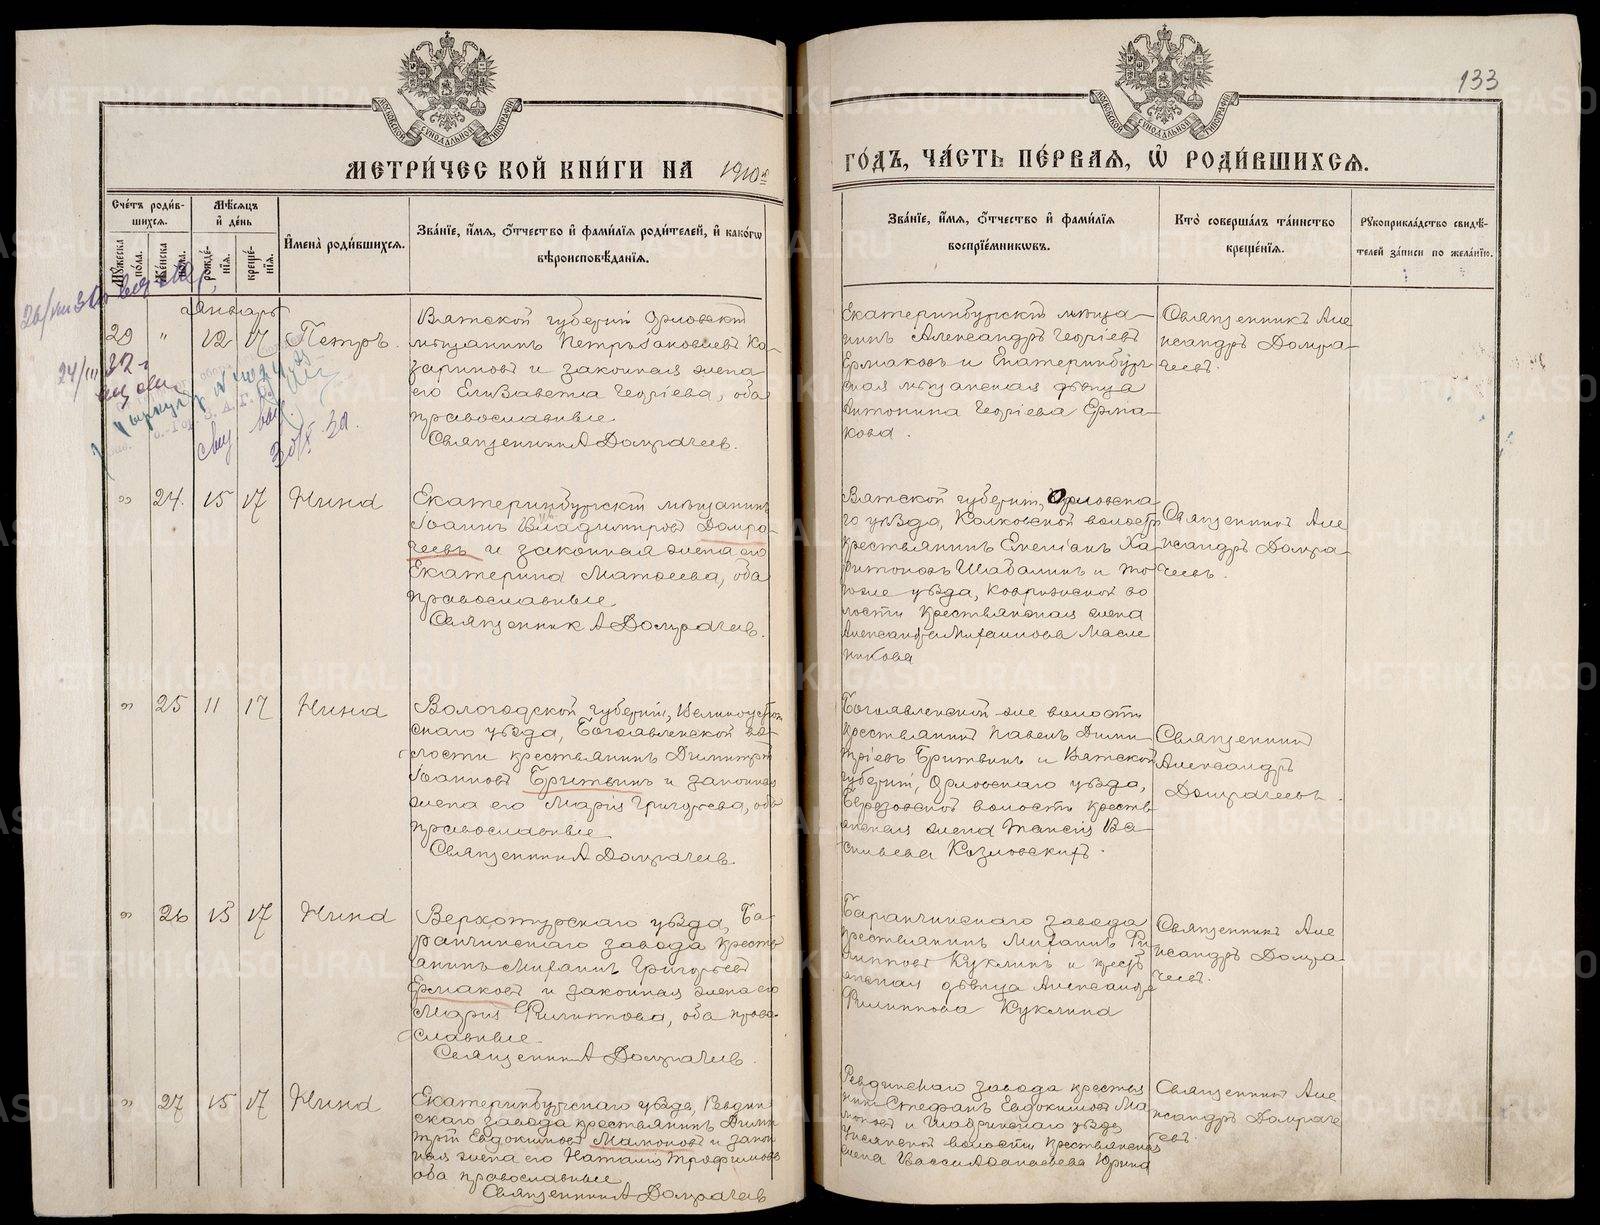 133
МОСКОВСКОЙ СѴНОДАЛЬНОЙ ТИПОГРАФІИ
МОСКОВСКОЙ СѴНОДАЛЬНОЙ ТИПОГРАФІИ
МЕТРИ́ЧЕСКОЙ КНИ́ГИ НА 1910й
ГО́ДЪ, ЧА́СТЬ ПЕ́РВАЯ, Ѡ҆ РОДИ́ВШИХСЯ.
Сче́тъ роди́вшихся.
Мѣ́сяцъ и҆ де́нь
Му́жеска по́ла.
Же́нска по́ла.
рожде́нїя.
креще́нїя.
И҆мена̀ роди́вшихся.
Зва́нїе, и҆́мя, ѻ҆́тчество и҆ фами́лїя роди́телей, и҆ како́гѡ
вѣроисповѣ́данїя.
Зва́нїе, и҆́мя, ѻ҆́тчество и҆ фами́лїя
воспрїе́мникѡвъ.
Кто̀ соверша́лъ та́инство
креще́нїя.
Рꙋкоприкла́дство свидѣ́
телей за́писи по жела́нїю.
Январь
29 " 12 17 Петръ.
Вятской губерніи Орловскій
мѣщанинъ Петръ Іаковлевъ Ка
зариновъ и законная жена
его Елизавета Георгіева, оба
православные
Священникъ А Домрачевъ.
Екатеринбургскій мѣща
нинъ Александръ Георгіевъ
Ермаковъ и Екатеринбург
ская мѣщанская дѣвица
Антонина Георгіева Ерма
кова.
Священникъ Але
ксандръ Домра
чевъ.
" 24. 15 17 Нина
Екатеринбургскій мѣщанинъ
Іоаннъ Владиміровъ Домра
чевъ и законная жена его
Екатерина Матѳеева, оба
православные
Священникъ А Домрачевъ.
Вятской губерніи, Орловска
го уѣзда, волости
крестьянинъ Емеліанъ Ха
ритоновъ Шабалинъ и то
го же уѣзда, во
лости крестьянская жена
Александра Михаилова Масле
никова
Священникъ Але
ксандръ Домра
чевъ.
" 25 11 17 Нина
Вологодской губерніи, Великоустюж
скаго уѣзда, Богоявленской во
лости крестьянинъ Димитрій
Іоанновъ Бритвинъ и законная
жена его Марія Григорьева, оба
православные
Священникъ А Домрачевъ.
Богоявленской же волости
крестьянинъ Павелъ Дими
тріевъ Бритвинъ и Вятской
губерніи, Орловскаго уѣзда,
волости кресть
янская жена Таисія Ва
сильева Козловскихъ.
Священникъ
Александръ
Домрачевъ.
" 26 15 17 Нина
Верхотурскаго уѣзда, Ба
ранчинскаго завода кресть
янинъ Михаилъ Григорьевъ
Ермаковъ и законная жена его
Марія Филиппова, оба право
славные.
Священникъ А Домрачевъ.
Баранчинскаго завода
крестьянинъ Михаилъ Фи
липповъ Куклинъ и кресть
янская дѣвица Александра
Филиппова Куклина
Священникъ Але
ксандръ Домра
чевъ.
" 27 15 17 Нина
Екатеринбургскаго уѣзда, Ревдин
скаго завода крестьянинъ Дими
трій Евдокимовъ Мамоновъ и закон
ная жена его Наталія Трофимова
оба православные
Священникъ А Домрачевъ
Ревдинскаго завода крестья
нинъ Стефанъ Евдокимовъ Ма
моновъ и Шадринскаго уѣзда
волости крестьянская
жена Аѳанасьева Юрина
Священникъ Але
ксандръ Домраче
евъ.
METRIKI.GASO-URAL.RU